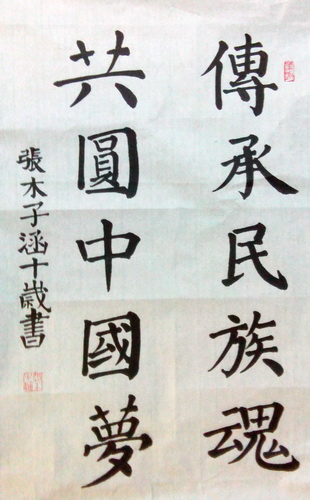 傳承民族魂
共圓中國夢
張木子涵十歲書